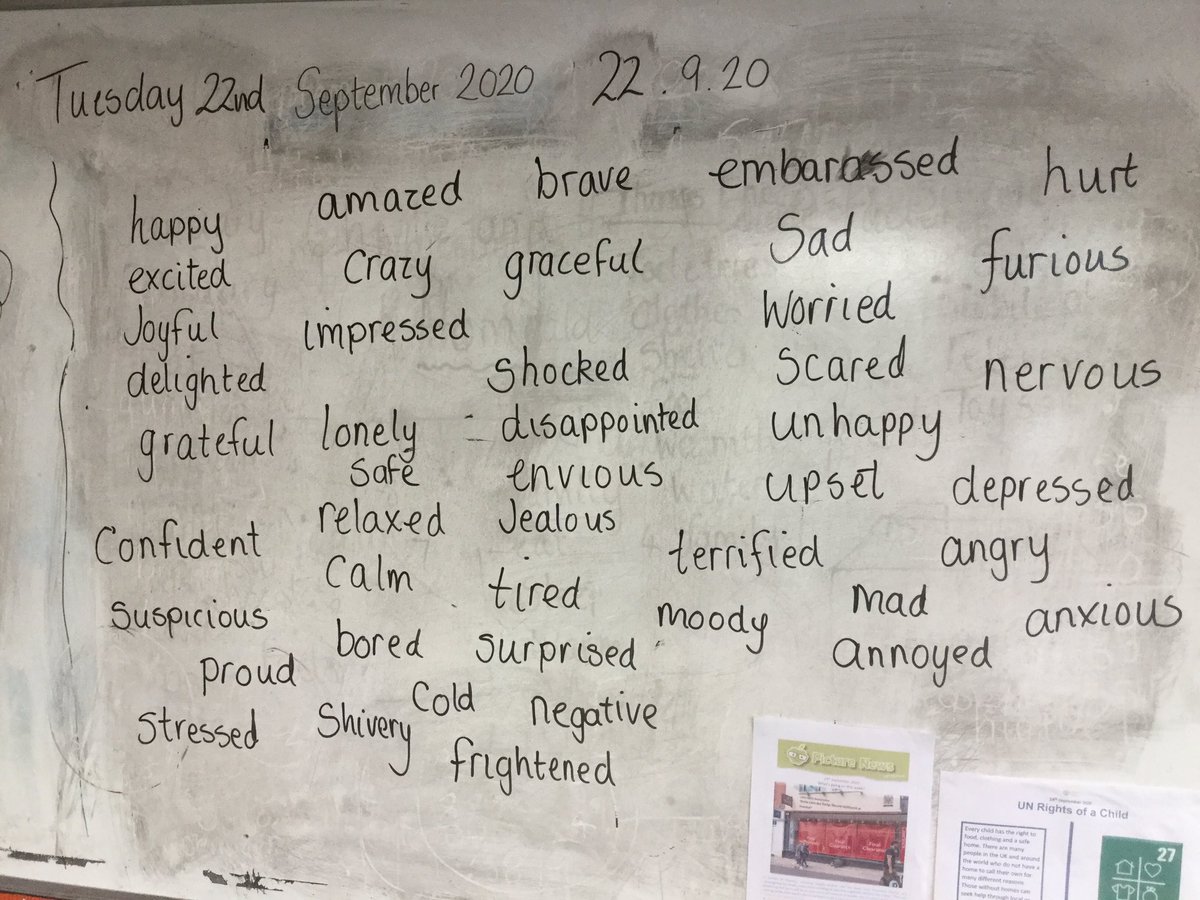 Tuesday 22nd September 2020 22.9.20
happy amazed brave embarassed hurt
excited crazy graceful Sad furious
Joyful impressed Worried
delighted Shocked Scared nervous
grateful lonely - disappointed unhappy
Safe envious upset depressed
Confident relaxed Jealous terrified angry
Calm tired
Suspicious bored Surprised moody mad anxious
proud annoyed
Stressed Shivery Cold negative
frightened
Picture News
UN Rights of a Child
Every child has the right to
food, clothing and a safe
home. There are many
people in the UK and around
the world who do not have a
home to call their own for
many different reasons.
Those without homes can
seek help through local
27